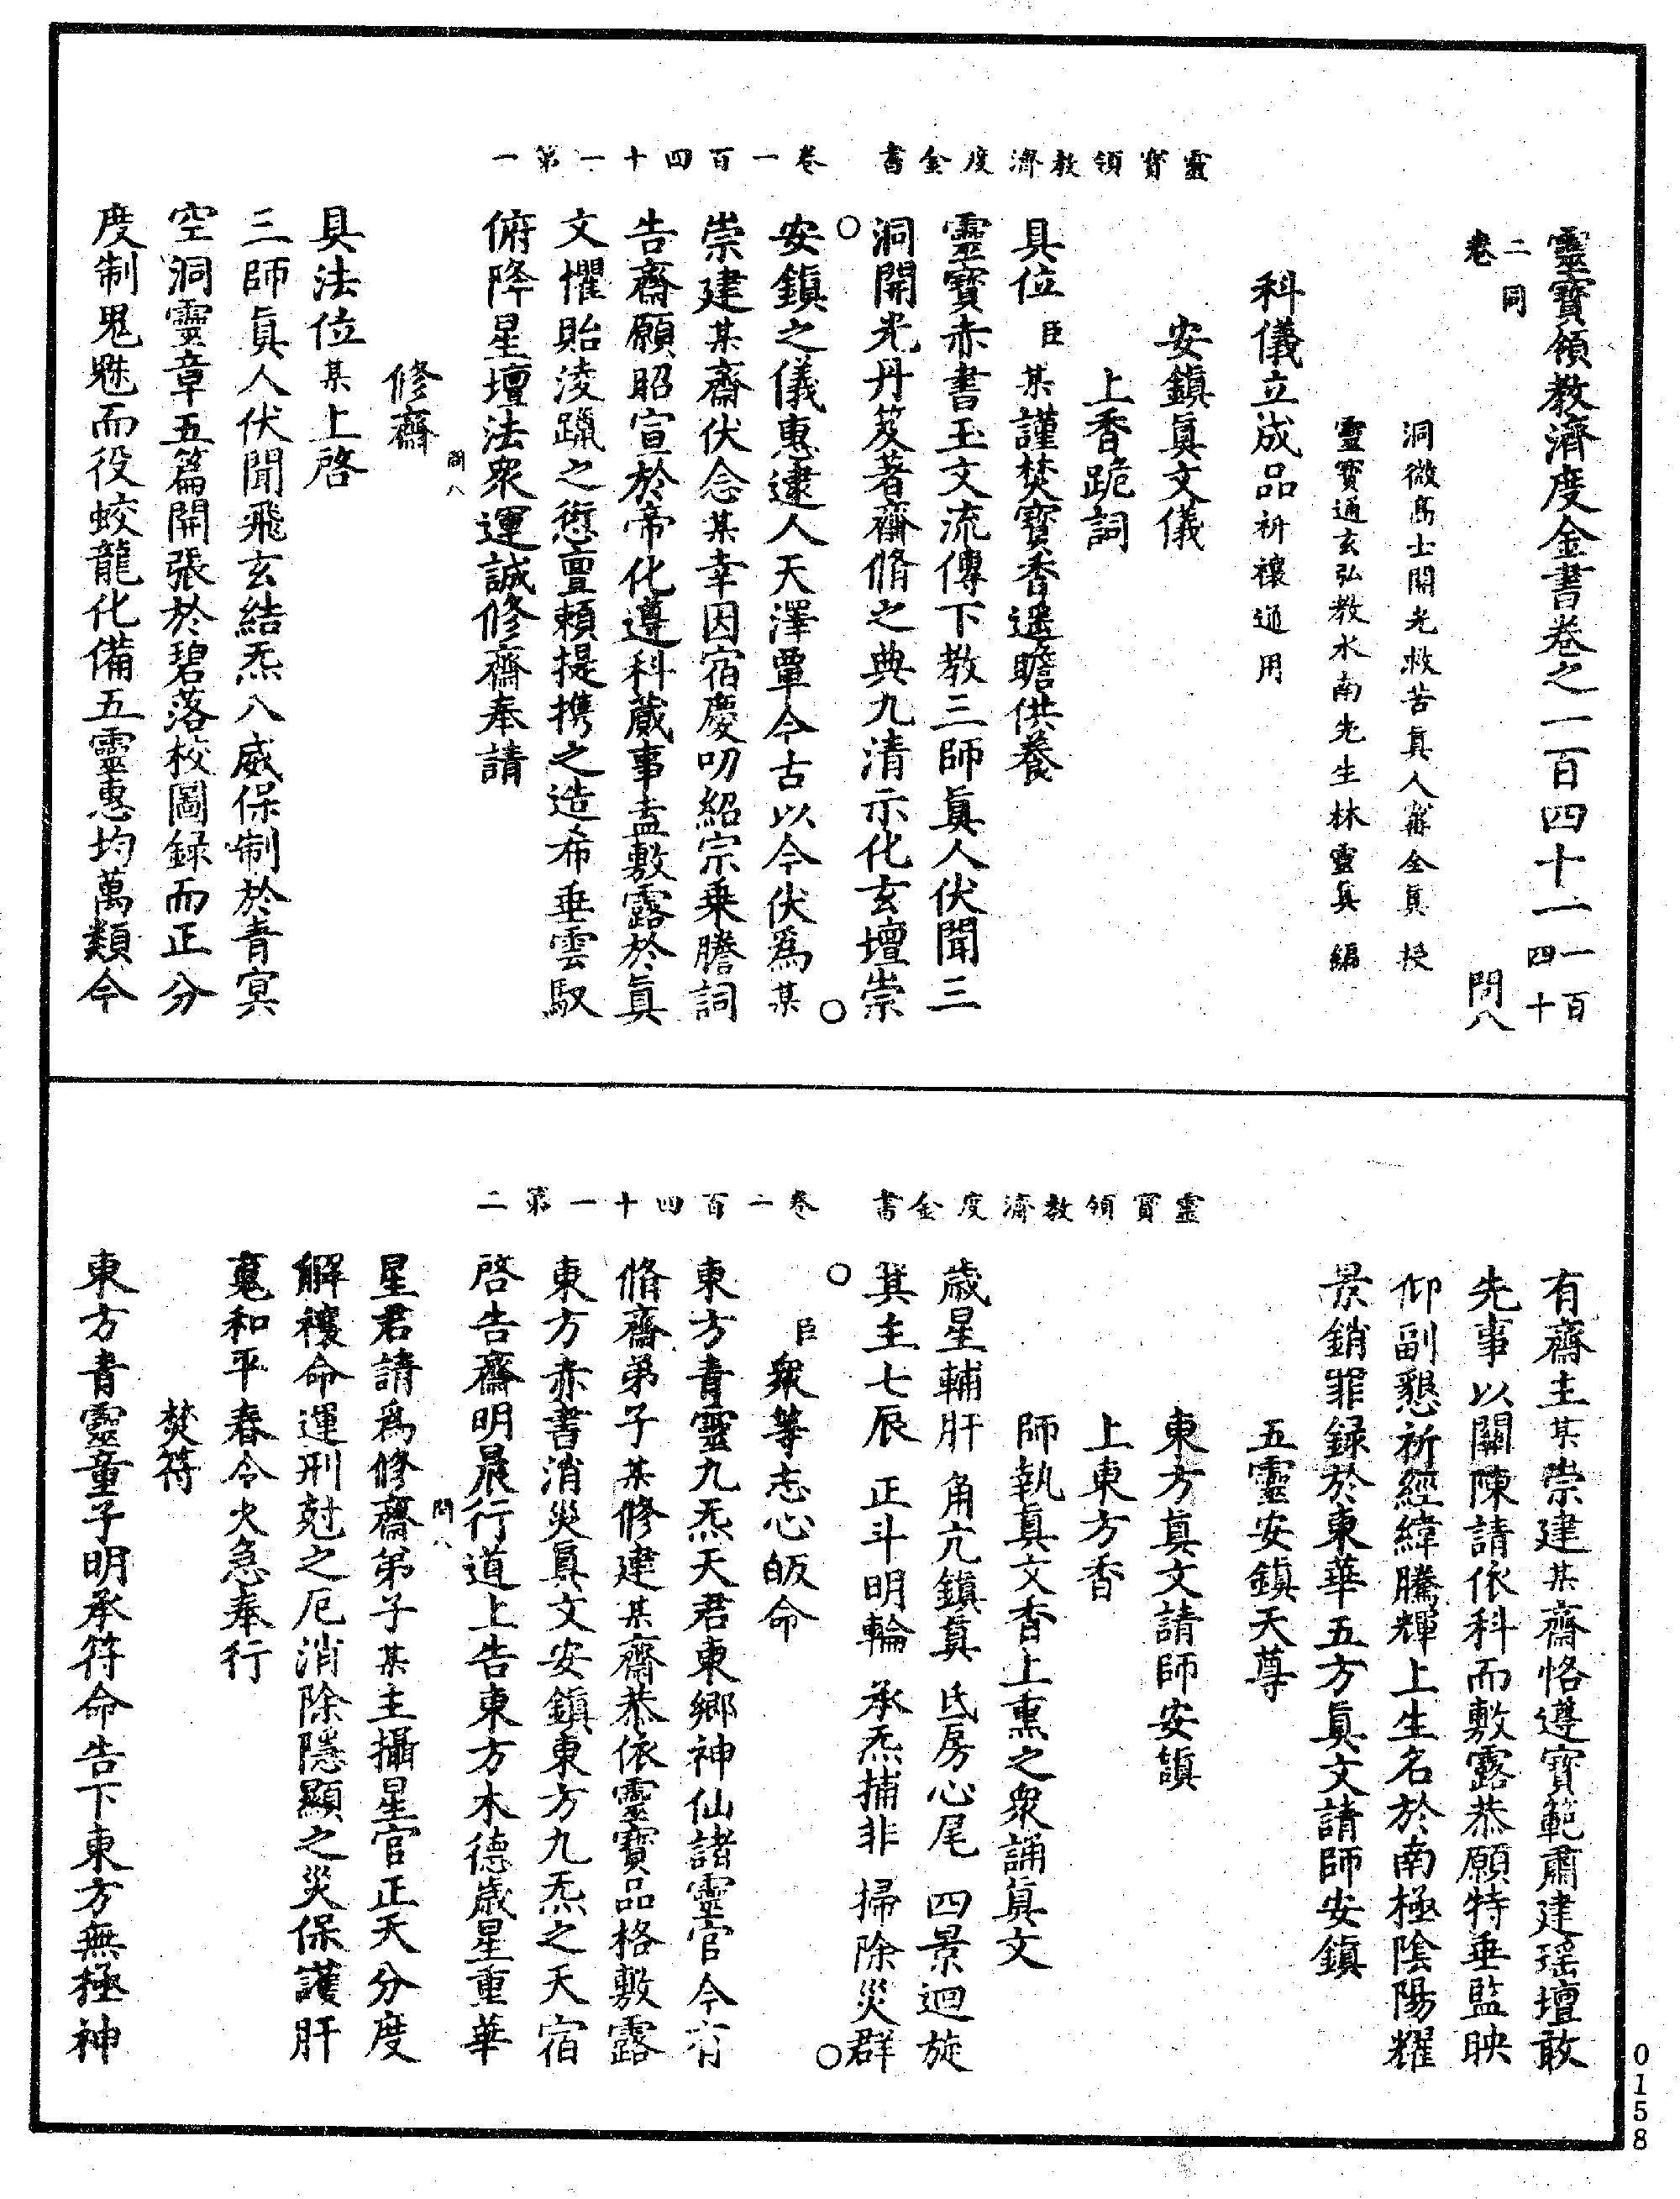 靈寶領教濟度金書卷之一百四十一一百四十
二同卷　問八
洞微高士開光救苦真人甯全真　授
靈寶通玄弘教水南先生林靈真　編
科儀立成品祈禳通用
安鎮眞文儀
上香跪詞
具位臣某謹焚寶香遥瞻供養
靈寶赤書玉文流傳下教三師眞人伏聞三
洞開光丹笈著齋脩之典九清示化玄壇崇
靈寶領教濟度金書　卷一百四十一第一
安鎮之儀惠逮人天澤覃今古以今伏爲某
崇建某齋伏念某幸因宿慶叨紹宗乗謄詞
告齋願昭宣於帝化遵科蕆事盍敷露於眞
文懼貽淩躐之愆亶頼提携之造希垂雲馭
俯降星壇法衆運誠修齋奉請
問八
修齋
具法位某上啓
三師眞人伏聞飛玄結炁八威保制於青冥
空洞靈章五篇開張於碧落校圖録而正分
度制鬼魃而役蛟龍化備五靈惠均萬類今
有齋主某崇建某齋恪遵寶範肅建瑶壇敢
先事以關陳請依科而敷露恭願特垂監映
仰副懇祈經緯騰輝上生名於南極陰陽耀
景銷罪録於東華五方眞文請師安鎮
五靈安鎮天尊
東方真文請師安鎮
上東方香
師執真文香上熏之衆誦眞文
歲星輔肝　角亢鎮眞　氐房心尾　四景迴旋
箕主七辰　正斗明輪　承炁捕非　掃除災群
靈寶領教濟度金書　卷一百四十一第二
臣衆等志心皈命
東方青靈九炁天君東鄉神仙諸靈官今有
脩齋弟子某修建某齋恭依靈寶品格敷露
東方赤書消災眞文安鎮東方九炁之天宿
啓告齋明晨行道上告東方木德歲星重華
問八
星君請爲修齋弟子某主攝星官正天分度
解禳命運刑尅之厄消除隱顯之災保護肝
䰟和平春令火急奉行
焚符
東方青靈童子明承符命告下東方無極神
0158